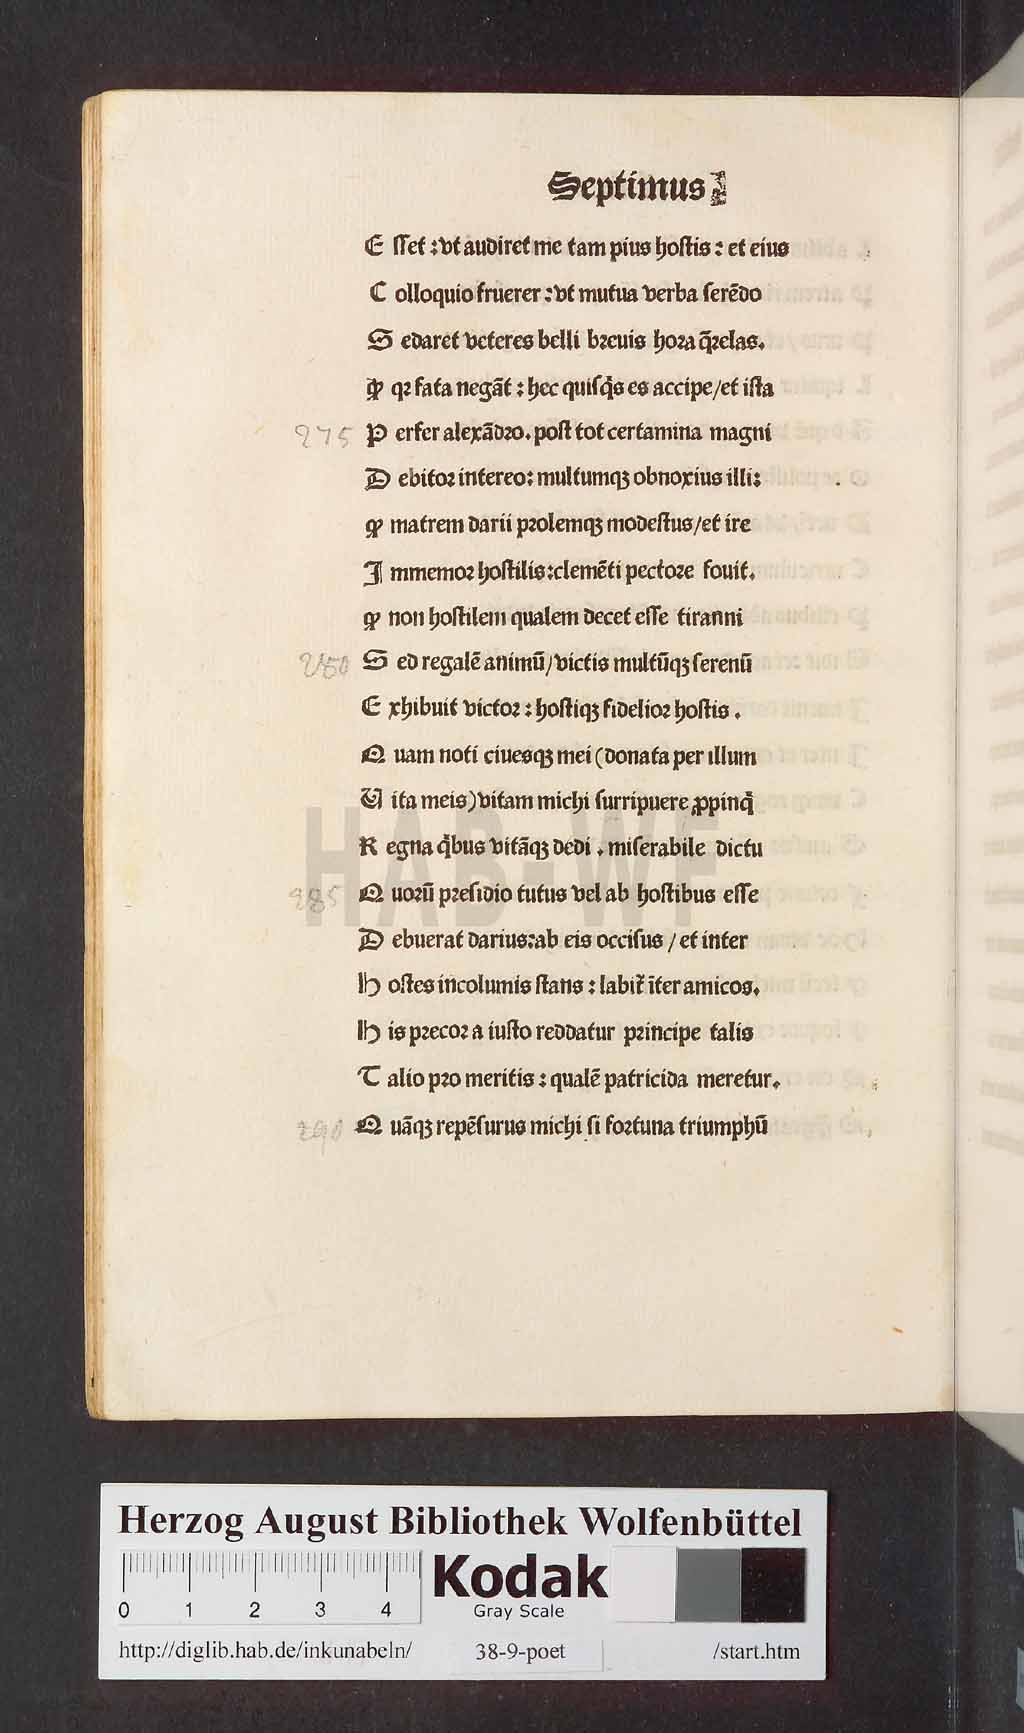 Septimus
E ſſet : vt audiret me tam pius hoſtis : et eius
C olloquio fruerer : vt mutua verba ſerēdo
S edaret veteres belli bꝛeuis hoꝛa q̄relas.
Ꝙ qꝛ fata negāt : hec quiſq̇s es accipe/et iſta
275 P erfer alexādꝛo. poſt tot certamina magni
D ebitoꝛ intereo: multumqꝫ obnoxius illi:
Ꝙ matrem darii pꝛolemqꝫ modeſtus/et ire
I mmemoꝛ hoſtilis:clemēti pectoꝛe fouit.
Ꝙ non hoſtilem qualem decet eſſe tiranni
280 S ed regalē animū/victis multūqꝫ ſerenū
E xhibuit victoꝛ : hoſtiqꝫ fidelioꝛ hoſtis .
Q uam noti ciuesqꝫ mei (donata per illum
V ita meis)vitam michi ſurripuere ꝓpinq̄
R egna q̇bus vitāqꝫ dedi . miſerabile dictu
285 Q uoꝛū pꝛeſidio tutus vel ab hoſtibus eſſe
D ebuerat darius:ab eis occiſus / et inter
H oſtes incolumis ſtans : labit᷑ īter amicos.
H is pꝛecoꝛ a iuſto reddatur pꝛincipe talis
T alio pꝛo meritis : qualē patricida meretur.
290 Q uāqꝫ repēſurus michi ſi foꝛtuna triumphū
HAB-WF
Herzog August Bibliothek Wolfenbüttel
0 1 2 3 4
Kodak
Gray Scale
http://diglib.hab.de/inkunabeln/ 38-9-poet /start.htm